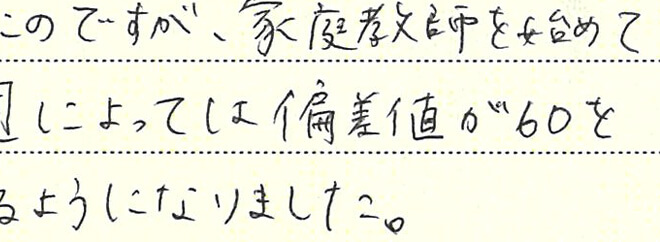 このですが、家庭教師を始めて
によっては偏差値が60を
るようになりました。